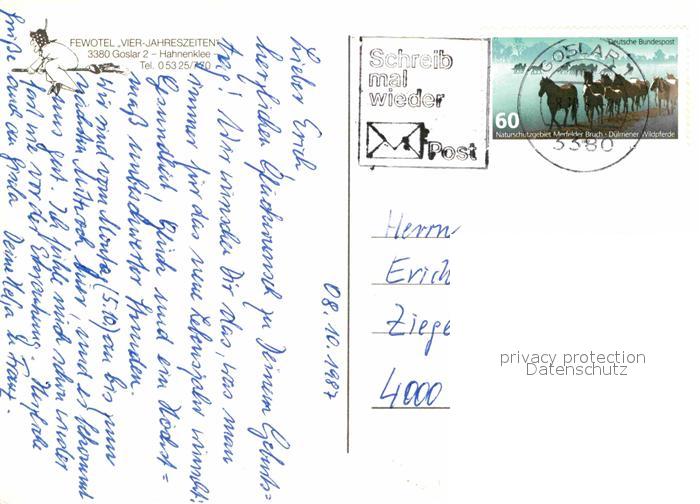 FEWOTEL „VIER-JAHRESZEITEN"
3380 Goslar 2 – Hahnenklee –
Tel. 0 53 25/7 70
08.10.1987
Lieber Erich
herzlichen Glückwunsch zu Deinem Geburts=
tag! Wir wünschen Dir das, was man
immer für das neue Lebensjahr wünscht:
Gesundheit, Glück und ein Höchst=
maß unbeschwerter Stunden.
Wir sind vom Montag (5.10) an bis zum
nächsten Mittwoch hier, und es bekommt
uns gut. Ich fühle mich schon wieder
fast wie vor der Erkrankung. Herzliche
Grüße auch an Deine
Schreib
mal
wieder
Post
GOSLAR 1
3380
Deutsche Bundespost
60
Naturschutzgebiet Merfelder Bruch · Dülmener Wildpferde
Herrn
Erich
Ziege
4000
privacy protection
Datenschutz